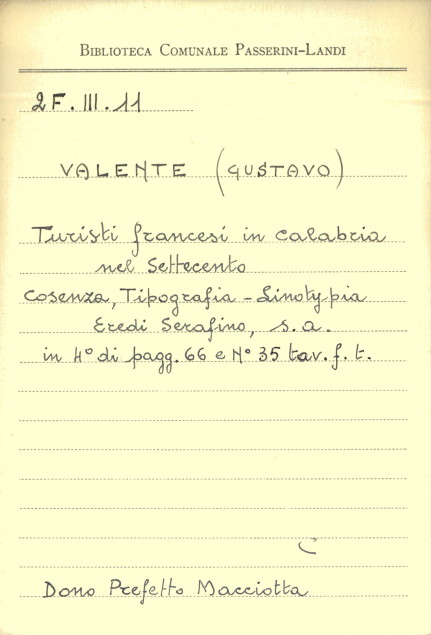 BIBLIOTECA COMUNALE PASSERINI-LANDI
2F. III. 11
VALENTE (GUSTAVO)
Turisti francesi in Calabria
nel Settecento
Cosenza, Tipografia - Linotypia
Eredi Serafino, s.a.
in 4° di pagg. 66 e N° 35 tav. f. t.
C
Dono Prefetto Macciotta